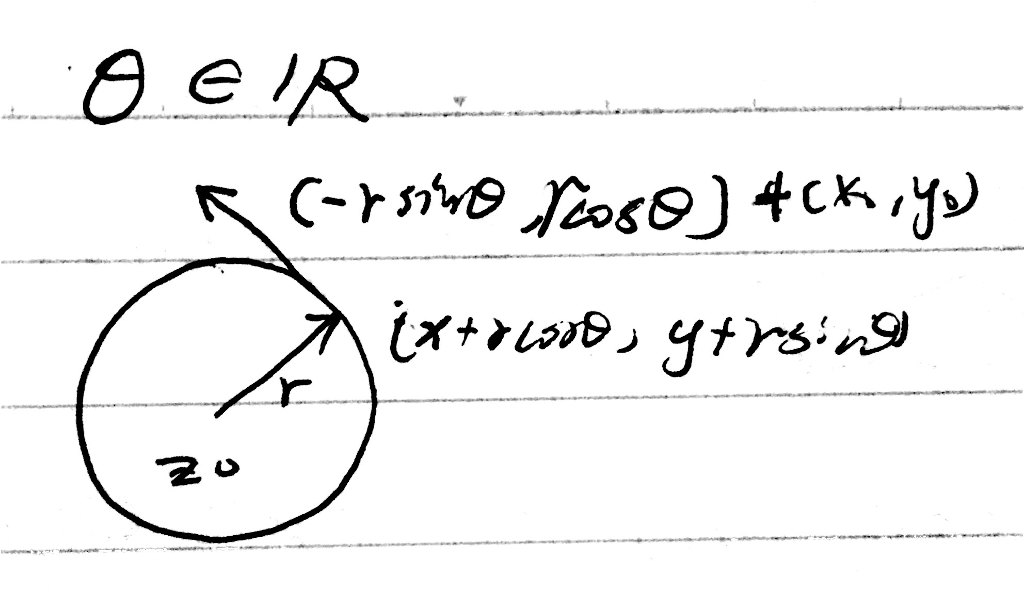 θ ∈ ℝ
(-r sinθ, r cosθ) + (x₀, y₀)
(x + r cosθ, y + r sinθ)
r
z₀